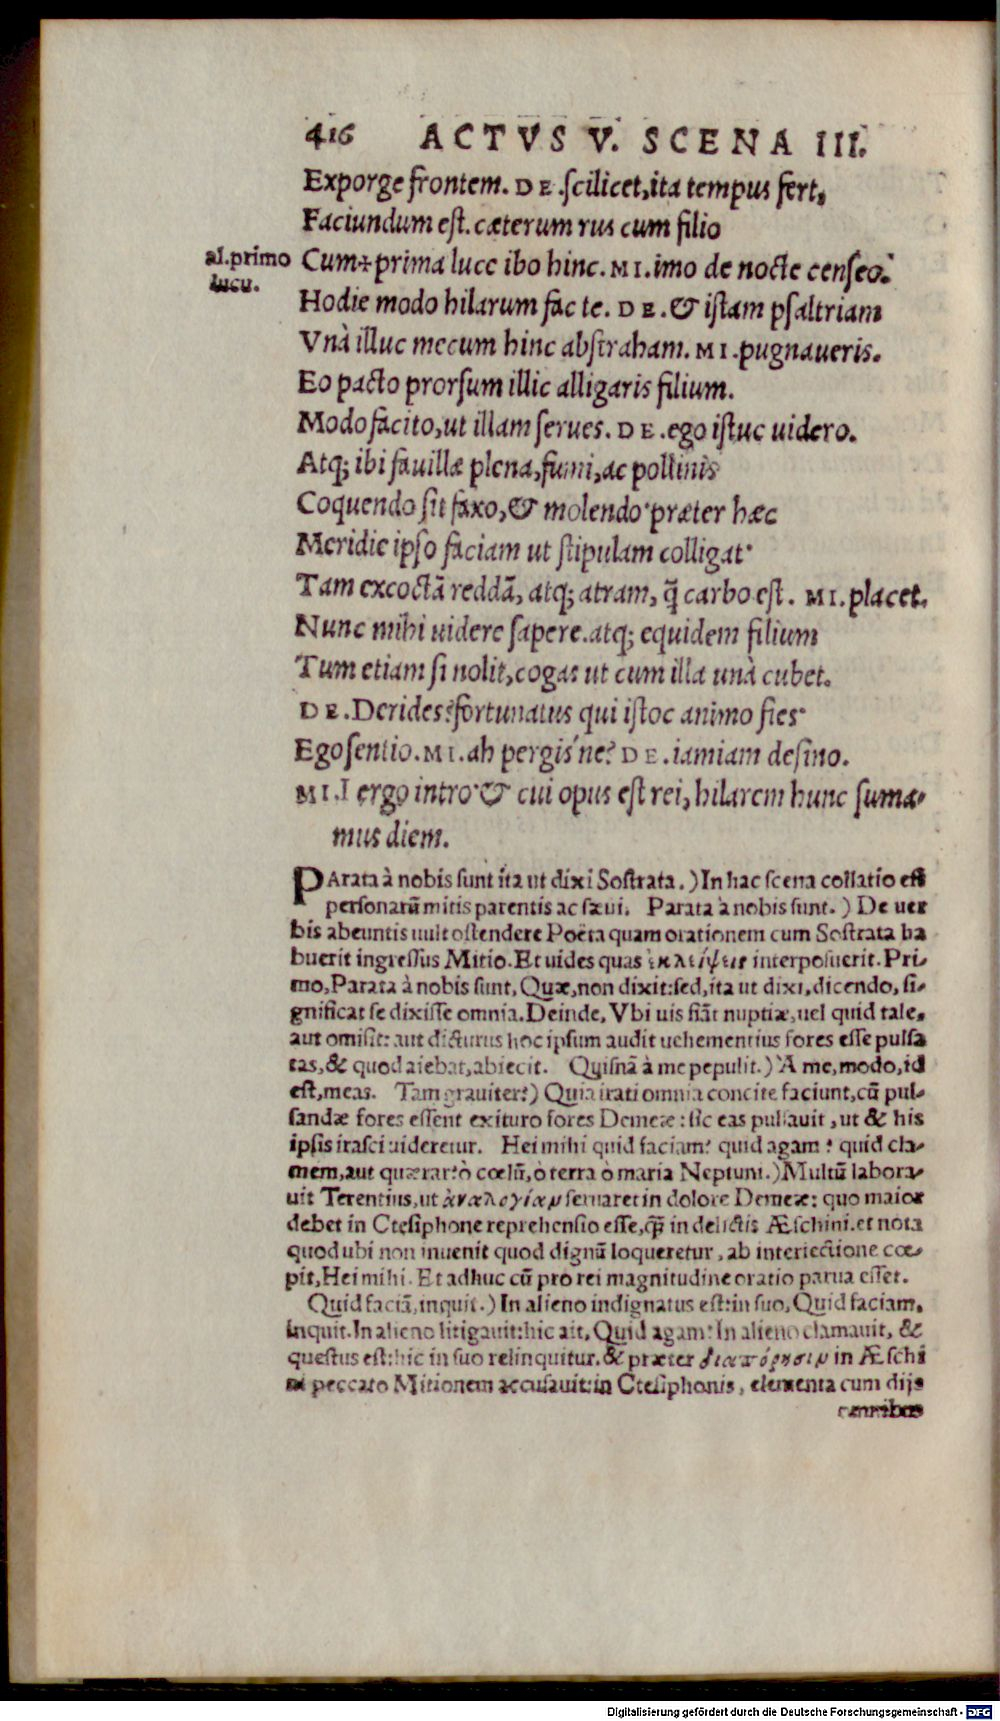 416 ACTVS V. SCENA III.
Exporge frontem. DE. scilicet, ita tempus fert,
Faciundum est. cæterum rus cum filio
al. primo lucu.
Cum+prima luce ibo hinc. MI. imo de nocte censeo.
Hodie modo hilarum fac te. DE. & istam psaltriam
Vnà illuc mecum hinc abstraham. MI. pugnaueris.
Eo pacto prorsum illic alligaris filium.
Modo facito, ut illam serues. DE. ego istuc uidero.
Atq; ibi fauillæ plena, fumi, ac pollinis
Coquendo sit faxo, & molendo· præter hæc
Meridie ipso faciam ut stipulam colligat·
Tam excoctā reddā, atq; atram, q̄ carbo est. MI. placet.
Nunc mihi uidere sapere. atq; equidem filium
Tum etiam si nolit, cogas ut cum illa unà cubet.
DE. Derides? fortunatus qui istoc animo sies·
Ego sentio. MI. ah pergis'ne? DE. iamiam desino.
MI. I ergo intro· & cui opus est rei, hilarem hunc suma-
mus diem.
PArata à nobis sunt ita ut dixi Sostrata.) In hac scena collatio est
personarū mitis parentis ac sæui. Parata à nobis sunt.) De uer
bis abeuntis uult ostendere Poëta quam orationem cum Sostrata ha
buerit ingressus Mitio. Et uides quas ἐκλείψεις interposuerit. Pri-
mo, Parata à nobis sunt, Quæ, non dixit: sed, ita ut dixi, dicendo, si-
gnificat se dixisse omnia. Deinde, Vbi uis fiāt nuptiæ, uel quid tale,
aut omisit: aut dicturus hoc ipsum audit uehementius fores esse pulsa
tas, & quod aiebat, abiecit. Quisnā à me pepulit.) A me, modo, id
est, meas. Tam grauiter?) Quia irati omnia concite faciunt, cū pul-
sandæ fores essent exituro fores Demeæ: sic eas pulsauit, ut & his
ipsis irasci uideretur. Hei mihi quid faciam? quid agam? quid cla-
mem, aut quærar? ò cœlū, ò terra ò maria Neptuni.) Multū labora-
uit Terentius, ut ἀναλογίαν seruaret in dolore Demeæ: quo maior
debet in Ctesiphone reprehensio esse, q̄ in delictis Æschini. et nota
quod ubi non inuenit quod dignū loqueretur, ab interiectione cœ-
pit, Hei mihi. Et adhuc cū pro rei magnitudine oratio parua esset.
Quid faciā, inquit.) In alieno indignatus est: in suo, Quid faciam,
inquit. In alieno litigauit: hic ait, Quid agam? In alieno clamauit, &
questus est: hic in suo relinquitur. & præter διαπόρησιν in Æschi
ni peccato Mitionem accusauit: in Ctesiphonis, elementa cum dijs
omnibus
Digitalisierung gefördert durch die Deutsche Forschungsgemeinschaft - DFG